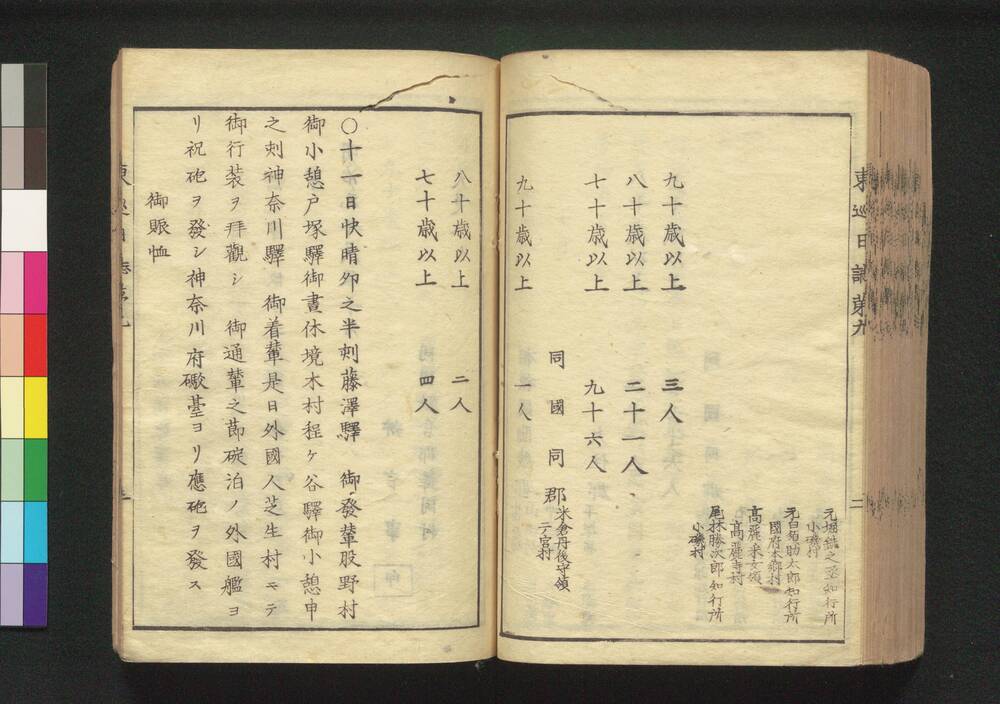 東巡日誌第九
二
元堀鉄之丞知行所
小磯村
元白須助太郎知行所
國府本郷村
高麗采女領
高麗寺村
尾林勝次郎知行所
小磯村
九十歳以上　三人
八十歳以上　二十一人
七十歳以上　九十六人
同國同郡米倉丹後守領
二宮村
九十歳以上　一人
八十歳以上　二人
七十歳以上　四人
○十一日快晴卯之半刻藤澤驛　御發輦股野村
御小憩戸塚驛御晝休境木村程ヶ谷驛御小憩申
之刻神奈川驛　御着輦是日外國人芝生村ニテ
御行装ヲ拜觀シ　御通輦之節碇泊ノ外國艦ヨ
リ祝砲ヲ發シ神奈川府礮臺ヨリ應砲ヲ發ス
御賑恤